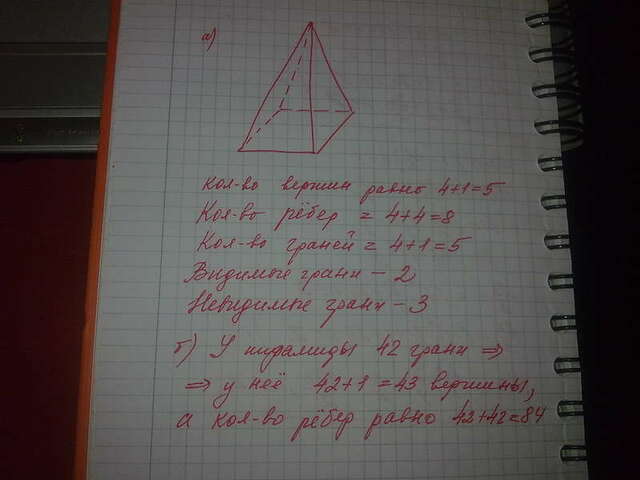 а)
кол-во вершин равно 4+1=5
Кол-во рёбер = 4+4=8
Кол-во граней = 4+1=5
Видимые грани - 2
Невидимые грани - 3
б) У пирамиды 42 грани ⇒
⇒ у неё 42+1=43 вершины,
а кол-во рёбер равно 42+42=84